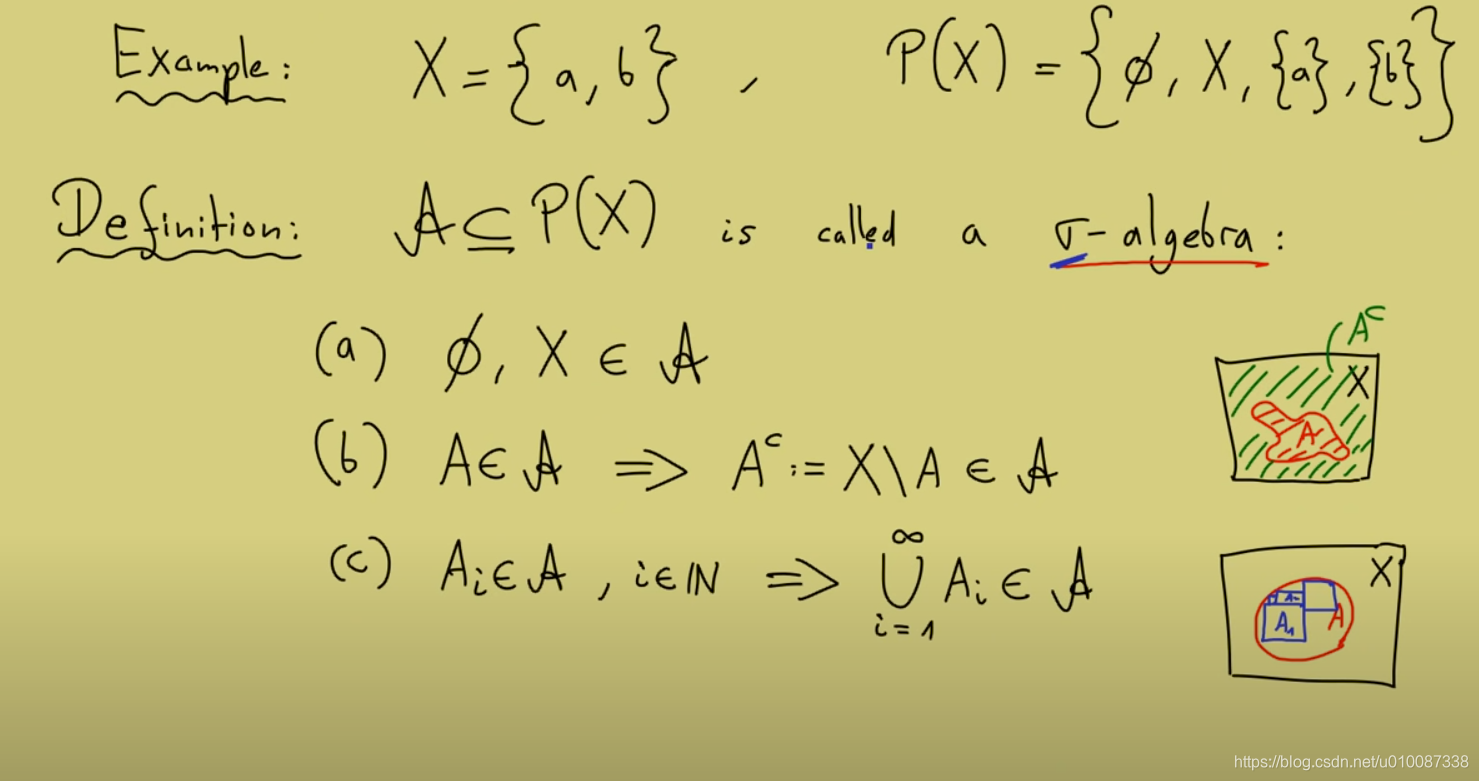 Example: X = {a, b} , P(X) = {∅, X, {a}, {b}}
Definition: 𝒜 ⊆ P(X) is called a σ-algebra:
(a) ∅, X ∈ 𝒜
Aᶜ
X
A
(b) A ∈ 𝒜 ⇒ Aᶜ := X\A ∈ 𝒜
(c) Aᵢ ∈ 𝒜 , i ∈ ℕ ⇒ ⋃_{i=1}^{∞} Aᵢ ∈ 𝒜
X
A₁
A
https://blog.csdn.net/u010087338